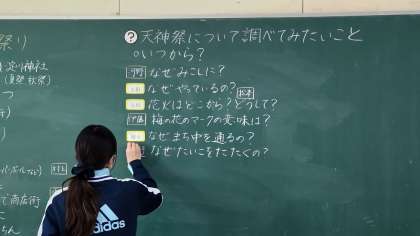 祭り)
淀川神社
(夏祭 秋祭)
で商店街
ちん
? 天神祭について調べてみたいこと
○いつから?
なぜみこしに?
なぜやっているの?
花火はどこから?どうして? 松本
伊藤 梅の花のマークの意味は?
なぜまち中を通るの?
なぜたいこをたたくの?
adidas